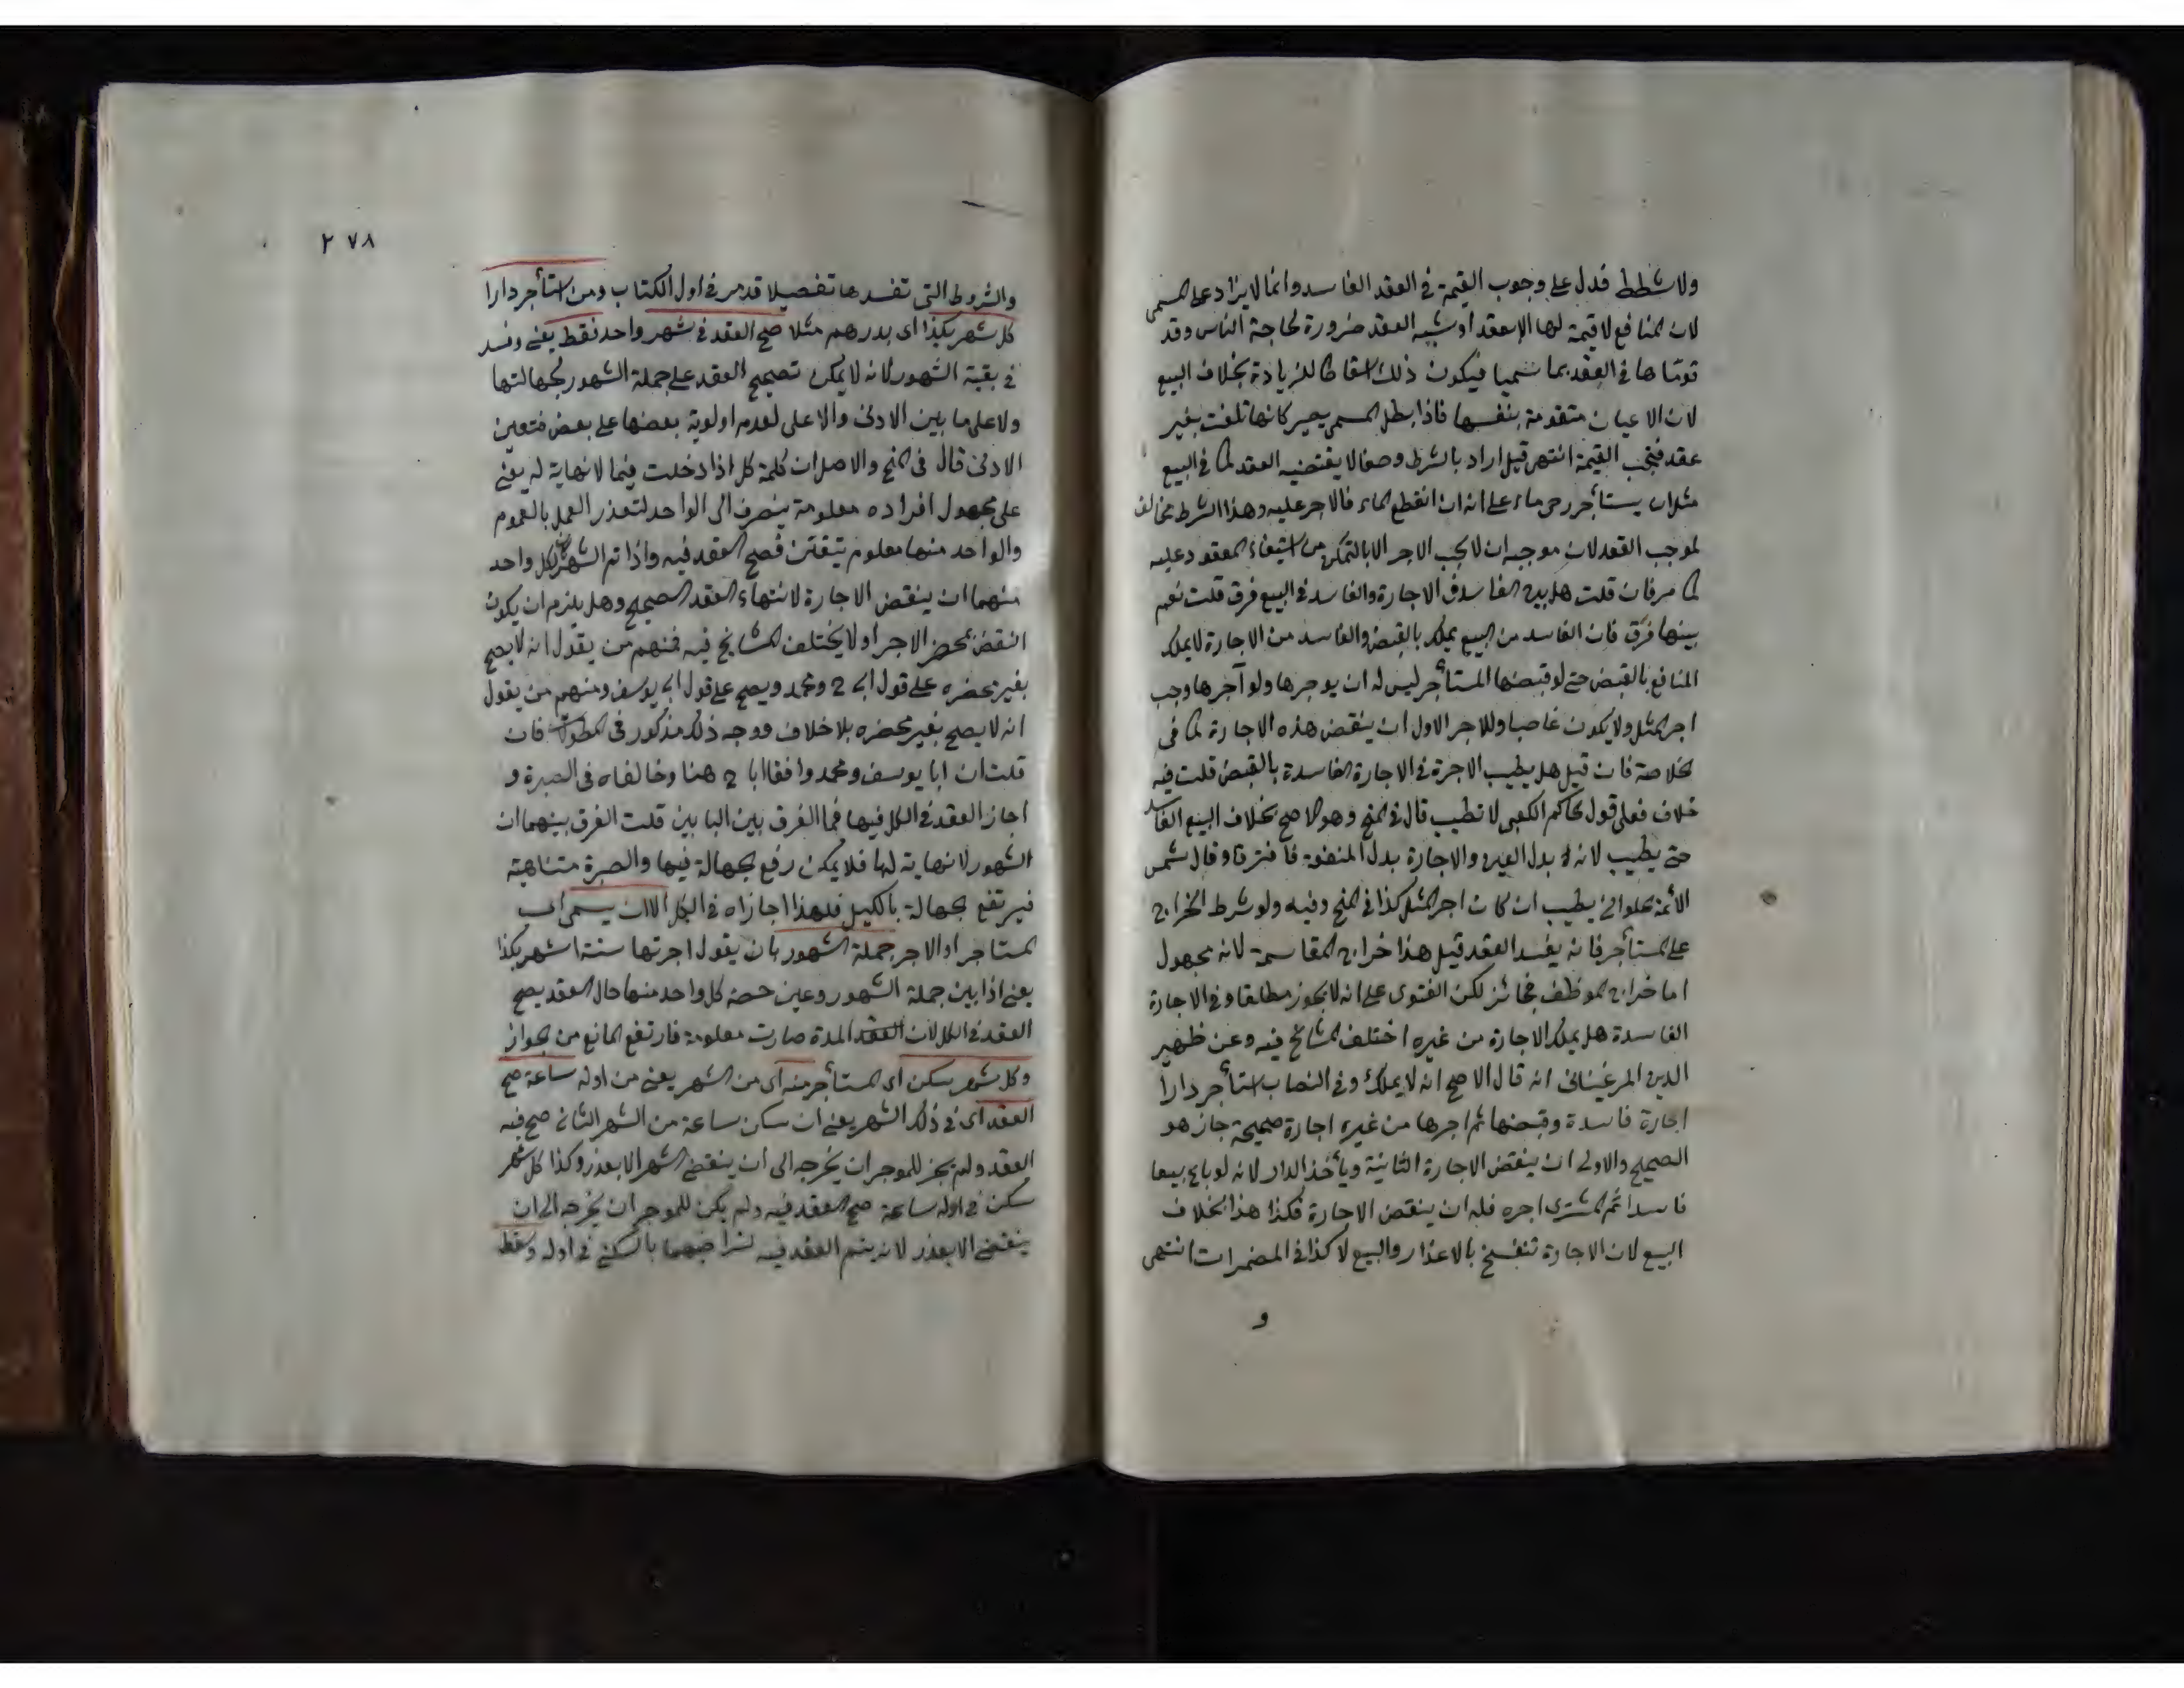 ولا شطط فدل على وجوب القيمة في العقد الفاسد وانما لا يزاد على المسمى
لان المنافع لا قيمة لها الا بعقد او شبه العقد ضرورة لحاجة الناس وقد
قوماها في العقد بما سميا فيكون ذلك اسقاطا للزيادة بخلاف البيع
لان الاعيان متقومة بنفسها فاذا بطل المسمى يصير كانها تلفت بغير
عقد فتجب القيمة انتهى قيل اراد بالشرط وصفا لا يقتضيه العقد كما في البيع
مثلا ان يستأجر رحى ماء على انه ان انقطع الماء فالاجر عليه وهذا الشرط مخالف
لموجب العقد لان موجبه ان لا يجب الاجر الا بالتمكن من استيفاء المعقود عليه
كما مر فان قلت هل بين الفاسد في الاجارة والفاسد في البيع فرق قلت نعم
بينهما فرق فان الفاسد من البيع يملك بالقبض والفاسد من الاجارة لا يملك
المنافع بالقبض حتى لو قبضها المستأجر ليس له ان يوجرها ولو آجرها وجب
اجر المثل ولا يكون غاصبا وللاجر الاول ان ينقض هذه الاجارة كما في
الخلاصة فان قيل هل يطيب الاجرة في الاجارة الفاسدة بالقبض قلت فيه
خلاف فعلى قول الحاكم الكعبى لا تطيب قال في المنح وهو الاصح بخلاف البيع الفاسد
حتى يطيب لانه بدل العين والاجارة بدل المنفعة فافترقا وقال شمس
الأئمة الحلوانى يطيب ان كان اجر المثل كذا في المنح وفيه ولو شرط الخراج
على المستأجر فانه يفسد العقد قيل هذا خراج المقاسمة لانه مجهول
اما خراج الموظف فجائز لكن الفتوى على انه لا يجوز مطلقا وفي الاجارة
الفاسدة هل يملك الاجارة من غيره اختلف المشايخ فيه وعن ظهير
الدين المرغينانى انه قال الاصح انه لا يملك وفي النصاب استأجر دارا
اجارة فاسدة وقبضها ثم اجرها من غيره اجارة صحيحة جاز هو
الصحيح والاولى ان ينقض الاجارة الثانية ويأخذ الدار لانه لو باع بيعا
فاسدا ثم المشترى اجره فله ان ينقض الاجارة فكذا هذا بخلاف
البيع لان الاجارة تنفسخ بالاعذار والبيع لا كذا في المضمرات انتهى
و
٢٧٨
والشروط التى تفسدها تفصيلا قد مر في اول الكتاب ومن استأجر دارا
كل شهر بكذا اى بدرهم مثلا صح العقد في شهر واحد فقط يعنى وفسد
في بقية الشهور لانه لا يمكن تصحيح العقد على جملة الشهور لجهالتها
ولا على ما بين الادنى والاعلى لعدم اولوية بعضها على بعض فتعين
الادنى قال في المنح والاصل ان كلمة كل اذا دخلت فيما لا نهاية له يعنى
على مجهول افراده معلومة ينصرف الى الواحد لتعذر العمل بالعموم
والواحد منها معلوم متيقن فصح العقد فيه واذا تم الشهر كان لكل واحد
منهما ان ينقض الاجارة لانتهاء العقد الصحيح وهل يلزم ان يكون
النقض بمحضر الاجر او لا يختلف المشايخ فيه فمنهم من يقول انه لا يصح
بغير محضره على قول ابى ح ومحمد ويصح على قول ابى يوسف ومنهم من يقول
انه لا يصح بغير محضره بلا خلاف ووجه ذلك مذكور في المطولات فان
قلت ان ابا يوسف ومحمد وافقا ابا ح هنا وخالفاه في الصبرة و
اجاز العقد في الكل فيها فما الفرق بين البابين قلت الفرق بينهما ان
الشهور لا نهاية لها فلا يمكن رفع الجهالة فيها والصبرة متناهية
فيرتفع الجهالة بالكيل فلهذا اجازاه في الكل الا ان يسمى اى
المستاجر او الاجر جملة الشهور بان يقول اجرتها ستة اشهر بكذا
يعنى اذا بين جملة الشهور وعين حصة كل واحد منها حال العقد يصح
العقد في الكل لان العقد المدة صارت معلومة فارتفع المانع من الجواز
وكل شهر سكن اى المستأجر منه اى من الشهر يعنى من اوله ساعة صح
العقد اى في ذلك الشهر يعنى ان سكن ساعة من الشهر الثانى صح فيه
العقد ولم يجز للموجر ان يخرجه الى ان ينقضى الشهر الا بعذر وكذا كل شهر
سكن في اوله ساعة صح العقد فيه ولم يكن للموجر ان يخرجه الى ان
ينقضى الا بعذر لانه يتم العقد فيه لتراضيهما بالسكنى في اوله وسقط